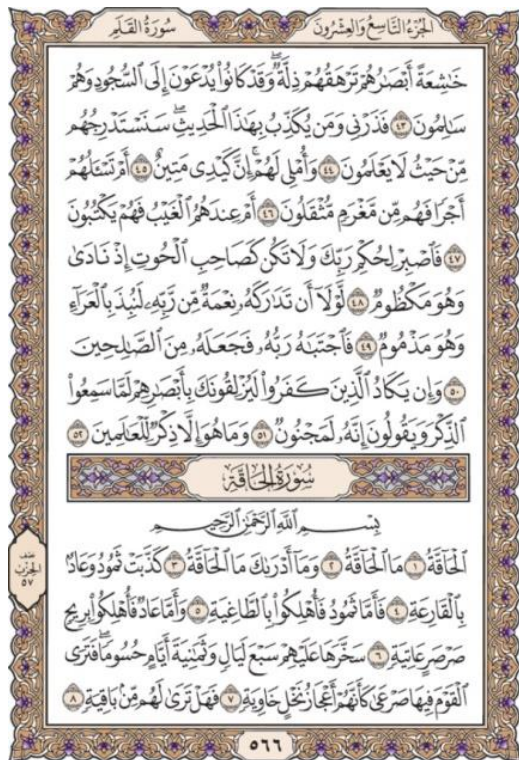 الجُزْءُ التَّاسِعُ وَالعِشْرُونَ
سُورَةُ القَلَمِ
خَٰشِعَةً أَبْصَٰرُهُمْ تَرْهَقُهُمْ ذِلَّةٌۖ وَقَدْ كَانُوا۟ يُدْعَوْنَ إِلَى ٱلسُّجُودِ وَهُمْ
سَٰلِمُونَ ٤٣ فَذَرْنِى وَمَن يُكَذِّبُ بِهَٰذَا ٱلْحَدِيثِۖ سَنَسْتَدْرِجُهُم
مِّنْ حَيْثُ لَا يَعْلَمُونَ ٤٤ وَأُمْلِى لَهُمْۚ إِنَّ كَيْدِى مَتِينٌ ٤٥ أَمْ تَسْـَٔلُهُمْ
أَجْرًا فَهُم مِّن مَّغْرَمٍ مُّثْقَلُونَ ٤٦ أَمْ عِندَهُمُ ٱلْغَيْبُ فَهُمْ يَكْتُبُونَ
٤٧ فَٱصْبِرْ لِحُكْمِ رَبِّكَ وَلَا تَكُن كَصَاحِبِ ٱلْحُوتِ إِذْ نَادَىٰ
وَهُوَ مَكْظُومٌ ٤٨ لَّوْلَآ أَن تَدَٰرَكَهُۥ نِعْمَةٌ مِّن رَّبِّهِۦ لَنُبِذَ بِٱلْعَرَآءِ
وَهُوَ مَذْمُومٌ ٤٩ فَٱجْتَبَٰهُ رَبُّهُۥ فَجَعَلَهُۥ مِنَ ٱلصَّٰلِحِينَ
٥٠ وَإِن يَكَادُ ٱلَّذِينَ كَفَرُوا۟ لَيُزْلِقُونَكَ بِأَبْصَٰرِهِمْ لَمَّا سَمِعُوا۟
ٱلذِّكْرَ وَيَقُولُونَ إِنَّهُۥ لَمَجْنُونٌ ٥١ وَمَا هُوَ إِلَّا ذِكْرٌ لِّلْعَٰلَمِينَ ٥٢
سُورَةُ الحَاقَّةِ
بِسْمِ ٱللَّهِ ٱلرَّحْمَٰنِ ٱلرَّحِيمِ
ٱلْحَآقَّةُ ١ مَا ٱلْحَآقَّةُ ٢ وَمَآ أَدْرَىٰكَ مَا ٱلْحَآقَّةُ ٣ كَذَّبَتْ ثَمُودُ وَعَادٌۢ
بِٱلْقَارِعَةِ ٤ فَأَمَّا ثَمُودُ فَأُهْلِكُوا۟ بِٱلطَّاغِيَةِ ٥ وَأَمَّا عَادٌ فَأُهْلِكُوا۟ بِرِيحٍ
صَرْصَرٍ عَاتِيَةٍ ٦ سَخَّرَهَا عَلَيْهِمْ سَبْعَ لَيَالٍ وَثَمَٰنِيَةَ أَيَّامٍ حُسُومًاۖ فَتَرَى
ٱلْقَوْمَ فِيهَا صَرْعَىٰ كَأَنَّهُمْ أَعْجَازُ نَخْلٍ خَاوِيَةٍ ٧ فَهَلْ تَرَىٰ لَهُم مِّنۢ بَاقِيَةٍ ٨
الحِزْب
٥٧
٥٦٦